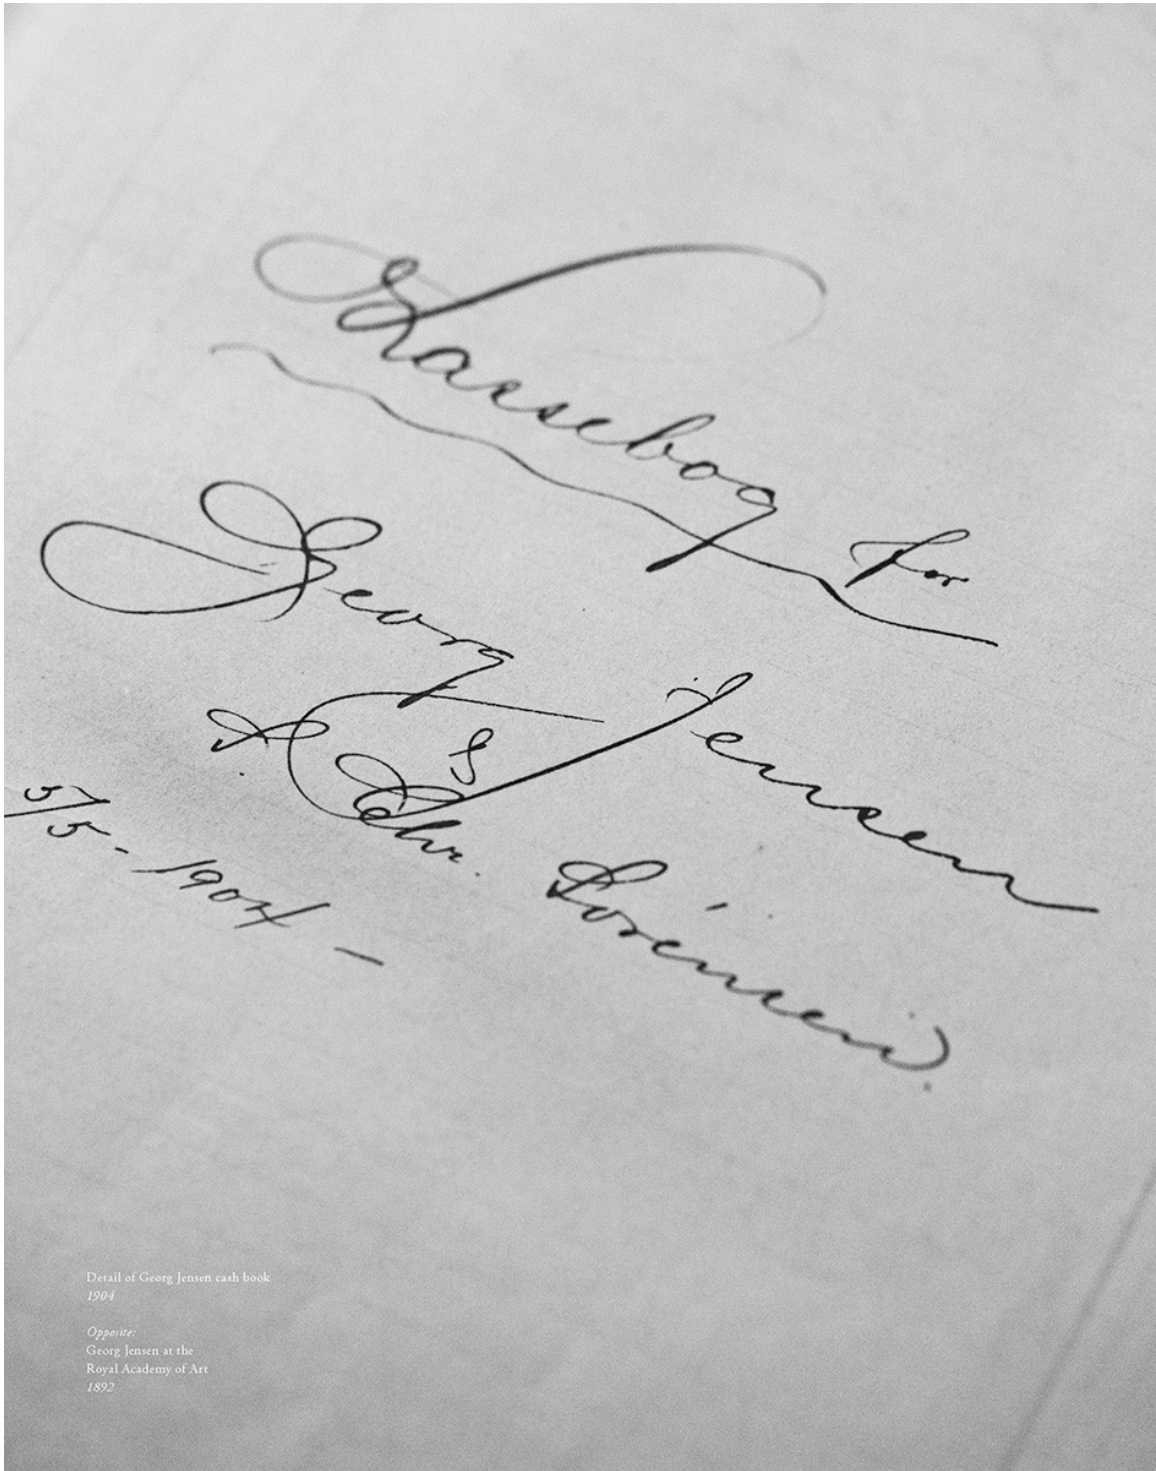 Kassebog for
Georg Jensen
& Chr.
5/5 - 1904 -
Detail of Georg Jensen cash book
1904
Opposite:
Georg Jensen at the
Royal Academy of Art
1892